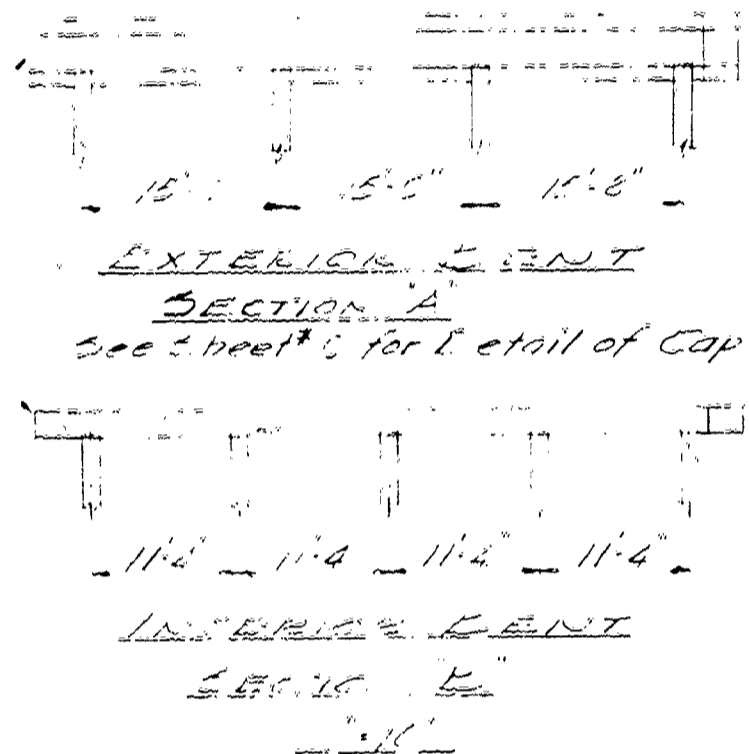 15'-8"
EXTERIOR BENT
SECTION "A"
See Sheet # for Detail of Cap
11'-4" 11'-4 11'-4" 11'-4"
INTERIOR BENT
SECTION "B"